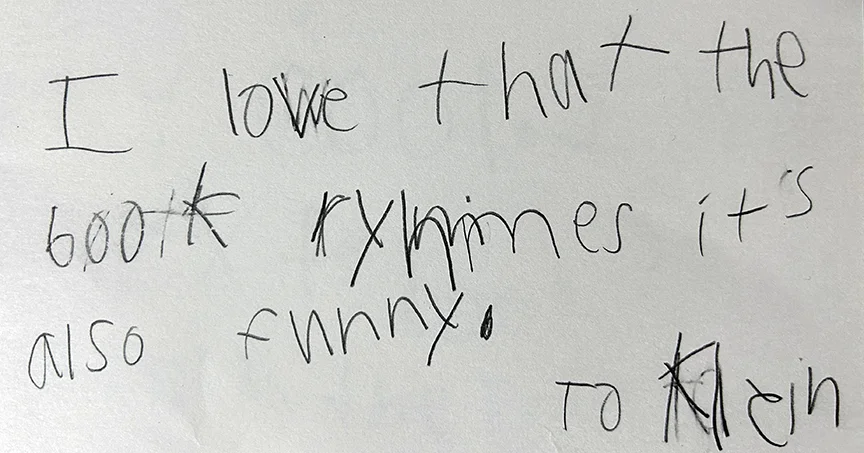 I love that the
book ryhmes it's
also funny.
To Klein